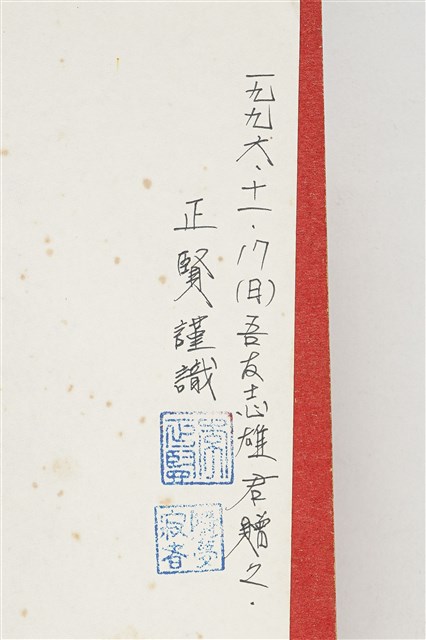 一九九六、十一.17(日)吾友志雄君贈之.
正賢謹識
正賢